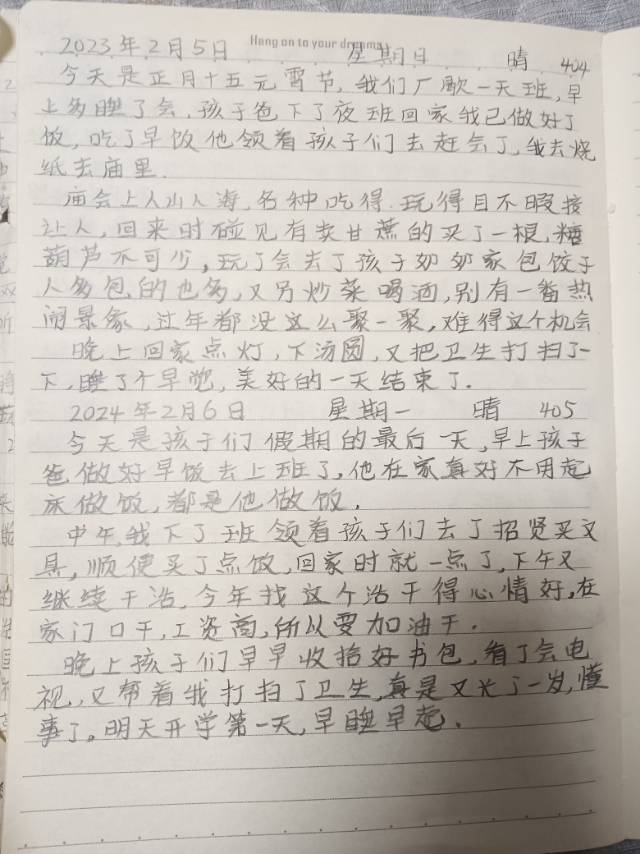 Hang on to your dreams
2023年2月5日 星期日 晴 404
今天是正月十五元宵节,我们厂歇一天班,早
上多睡了会,孩子爸下了夜班回家我已做好了
饭,吃了早饭他领着孩子们去赶会了,我去烧
纸去庙里.
庙会上人山人海,各种吃得.玩得目不暇接
让人,回来时碰见有卖甘蔗的买了一根,糖
葫芦不可少,玩了会去了孩子奶奶家包饺子
人多包的也多,又另炒菜喝酒,别有一番热
闹景象,过年都没这么聚一聚,难得这个机会
晚上回家点灯,下汤圆,又把卫生打扫了一
下,睡了个早觉,美好的一天结束了.
2024年2月6日 星期一 晴 405
今天是孩子们假期的最后一天,早上孩子
爸做好早饭去上班了,他在家真好不用起
床做饭,都是他做饭.
中午,我下了班领着孩子们去了招贤买文
具,顺便买了点饭,回家时就一点了,下午又
继续干活,今年找这个活干得心情好,在
家门口干,工资高,所以要加油干.
晚上孩子们早早收拾好书包,看了会电
视,又帮着我打扫了卫生,真是又长了一岁,懂
事了。明天开学第一天,早睡早起.